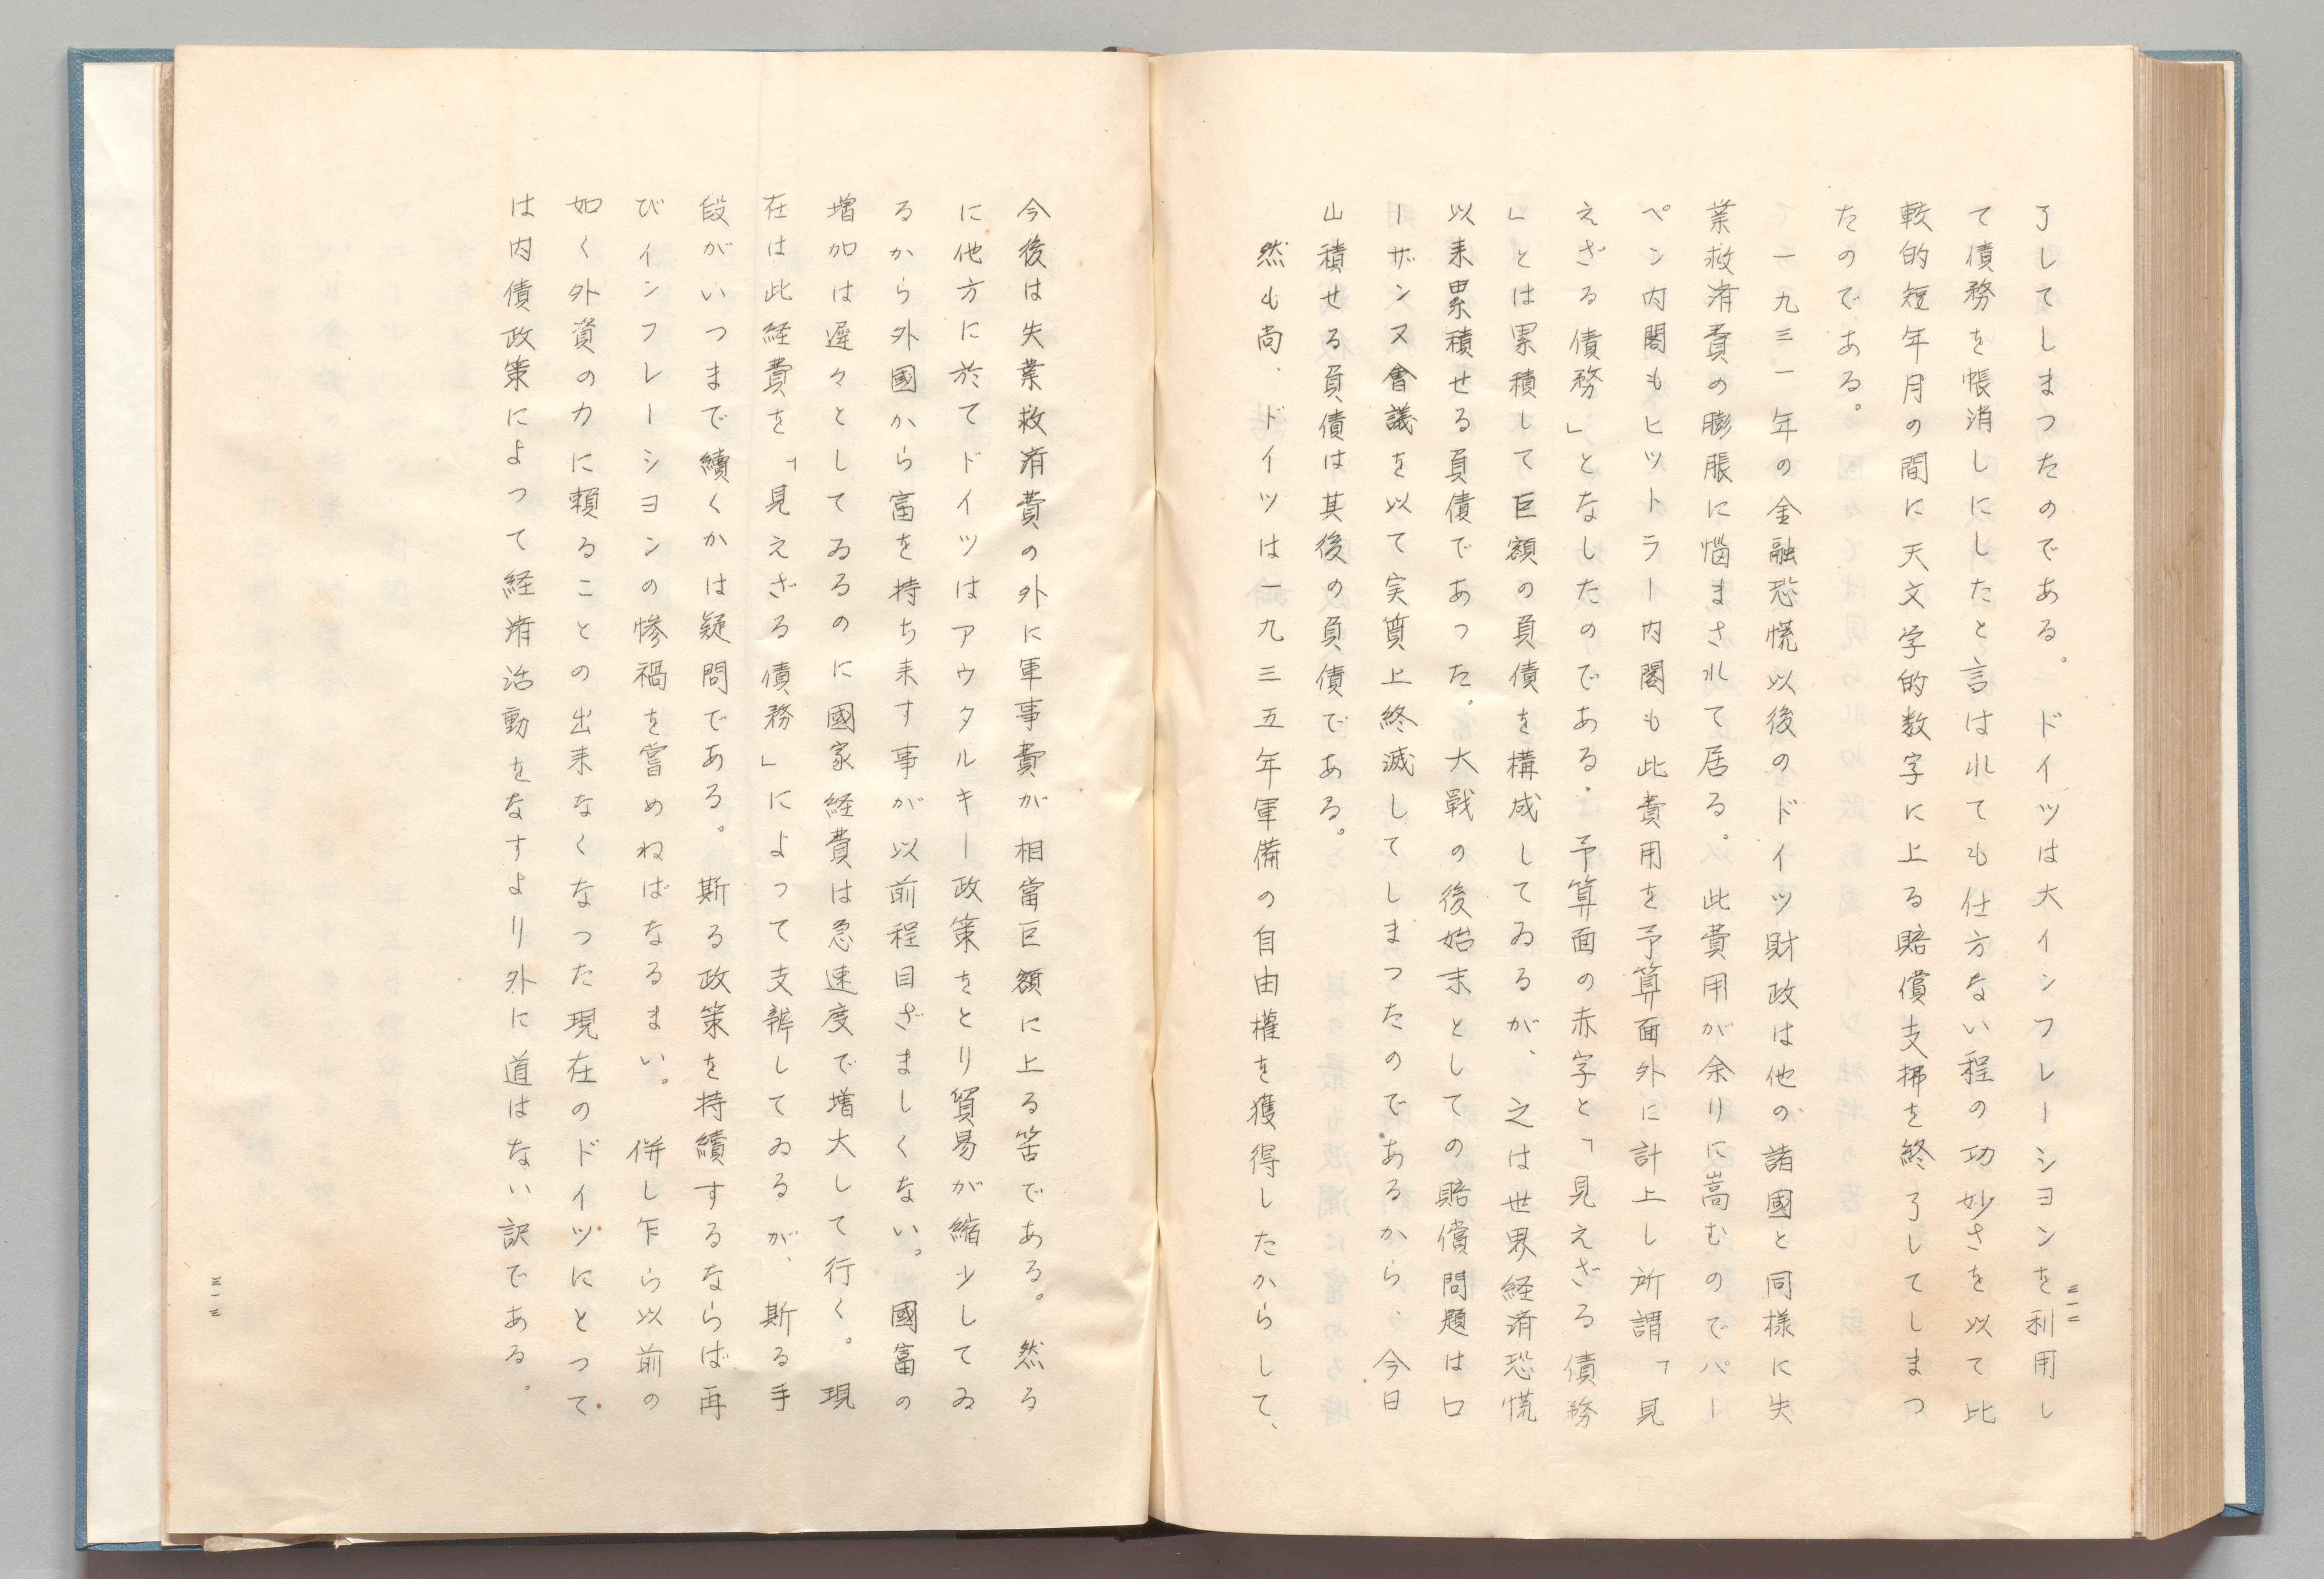 了してしまつたのである。　ドイツは大インフレーシヨンを利用し
て債務を帳消しにしたと言はれても仕方ない程の功妙さを以て比
較的短年月の間に天文学的数字に上る賠償支拂を終了してしまつ
たのである。
　一九三一年の金融恐慌以後のドイツ財政は他の諸國と同様に失
業救済費の膨脹に悩まされて居る。此費用が余りに嵩むのでパー
ペン内閣もヒツトラー内閣も此費用を予算面外に計上し所謂「見
えざる債務」となしたのである。予算面の赤字と「見えざる債務
」とは累積して巨額の負債を構成してゐるが、之は世界経済恐慌
以来累積せる負債であつた。大戰の後始末としての賠償問題はロ
ーザンヌ會議を以て実質上終滅してしまつたのであるから、今日
山積せる負債は其後の負債である。
　然も尚、ドイツは一九三五年軍備の自由權を獲得したからして、
三一二
今後は失業救済費の外に軍事費が相當巨額に上る筈である。然る
に他方に於てドイツはアウタルキー政策をとり貿易が縮少してゐ
るから外國から富を持ち来す事が以前程目ざましくない。國富の
増加は遅々としてゐるのに國家経費は急速度で増大して行く。現
在は此経費を「見えざる債務」によつて支辨してゐるが、斯る手
段がいつまで續くかは疑問である。斯る政策を持續するならば再
びインフレーシヨンの惨禍を嘗めねばなるまい。　併し乍ら以前の
如く外資の力に頼ることの出来なくなつた現在のドイツにとつて
は内債政策によつて経済活動をなすより外に道はない訳である。
三一三